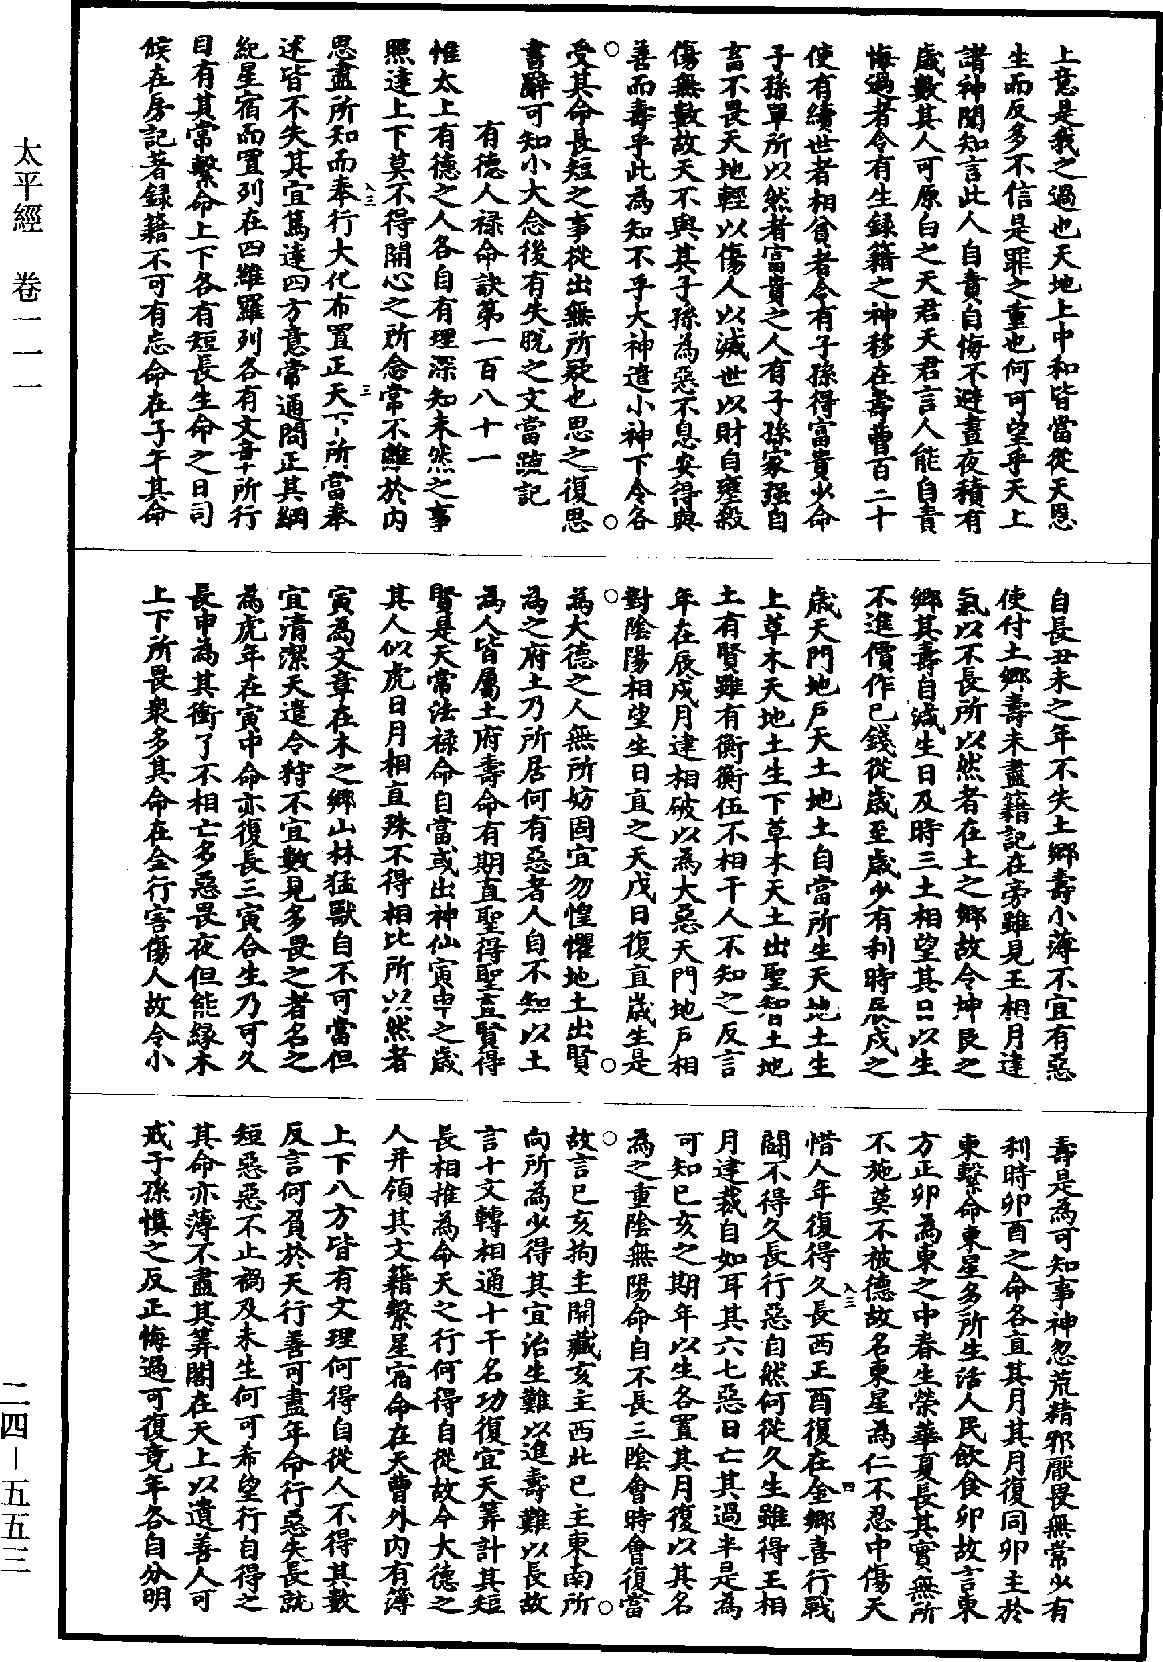 太平經 卷一一一
上意是我之過也天地上中和皆當從天恩
生而反多不信是罪之重也何可望乎天上
諸神聞知言此人自責自悔不避晝夜積有
歲數其人可原白之天君天君言人能自責
悔過者令有生錄籍之神移在壽曹百二十
使有續世者相貧者令有子孫得富貴少命
子孫單所以然者富貴之人有子孫家强自
畜不畏天地輕以傷人以滅世以財自壅殺
傷無數故天不與其子孫為惡不息安得與
善而壽乎此為知不乎大神遣小神下令各
受其命長短之事從出無所疑也思之復思
書辭可知小大念後有失脫之文當疏記
有德人祿命訣第一百八十一
惟太上有德之人各自有理深知未然之事
照達上下莫不得開心之所念常不離於內
思盡所知而奉行大化布置正天下所當奉
述皆不失其宜萬達四方意常通問正其綱
紀星宿而置列在四維羅列各有文章所行
目有其常繫命上下各有短長生命之日司
候在房記著錄籍不可有忘命在子午其命
自長丑未之年不失土鄉壽小薄不宜有惡
使付土鄉壽未盡籍記在旁雖見王相月建
氣以不長所以然者在土之鄉故令坤艮之
鄉其壽自減生日及時三土相望其口以生
不進價作已錢從歲至歲少有利時辰戌之
歲天門地戶天土地土自當所生天地土生
上草木天地土生下草木天土出聖智土地
土有賢雖有衡衡伍不相干人不知之反言
年在辰戌月建相破以為大惡天門地戶相
對陰陽相望生日直之天戊日復直歲生是
為大德之人無所妨固宜勿惶懼地土出賢
為之府土乃所居何有惡者人自不知以土
為人皆屬土府壽命有期直聖得聖直賢得
賢是天常法祿命自當或出神仙寅申之歲
其人似虎日月相直殊不得相比所以然者
寅為文章在木之鄉山林猛獸自不可當但
宜清潔天遣令狩不宜數見多畏之者名之
為虎年在寅中命亦復長三寅合生乃可久
長申為其衝了不相亡多惡畏夜但能緣木
上下所畏眾多其命在金行害傷人故令小
壽是為可知事神忽荒精邪厭畏無常少有
利時卯酉之命各直其月其月復同卯主於
東繫命東星多所生活人民飲食卯故言東
方正卯為東之中春生榮華夏長其實無所
不施莫不被德故名東星為仁不忍中傷天
惜人年復得久長西正酉復在金鄉喜行戰
鬪不得久長行惡自然何從久生雖得王相
月建裁自如耳其六七惡日亡其過半是為
可知巳亥之期年以生各置其月復以其名
為之重陰無陽命自不長三陰會時會復當
故言巳亥拘主開藏亥主西北巳主東南所
向所為少得其宜治生難以進壽難以長故
言十文轉相通十干名功復宜天筭計其短
長相推為命天之行何得自從故令大德之
人并領其文籍繫星宿命在天曹外內有簿
上下八方皆有文理何得自從人不得其數
反言何負於天行善可盡年命行惡失長就
短惡惡不止禍及未生何可希望行自得之
其命亦薄不盡其筭閣在天上以遺善人可
戒子孫慎之反正悔過可復竟年各自分明
二四－五五三